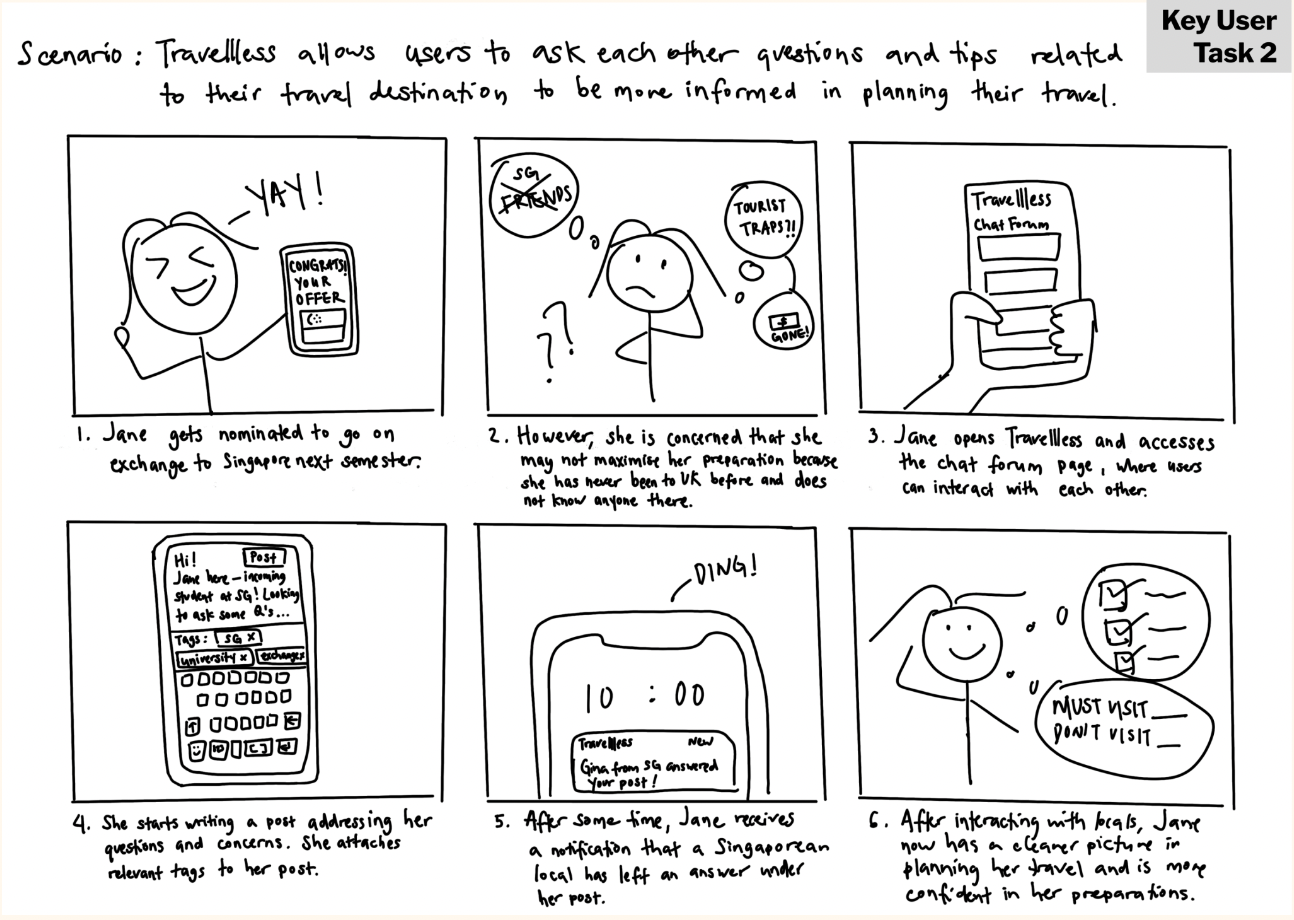 Key User
Task 2
Scenario : Travellless allows users to ask each other questions and tips related
to their travel destination to be more informed in planning their travel.
YAY!
CONGRATS!
YOUR
OFFER
1. Jane gets nominated to go on
exchange to Singapore next semester.
SG
FRIENDS
TOURIST
TRAPS?!
$
GONE!
? ?
2. However, she is concerned that she
may not maximise her preparation because
she has never been to UK before and does
not know anyone there.
Travellless
Chat Forum
3. Jane opens Travellless and accesses
the chat forum page, where users
can interact with each other.
Hi!
Post
Jane here – incoming
student at SG! Looking
to ask some Q's...
Tags: SG x
university x exchange x
4. She starts writing a post addressing her
questions and concerns. She attaches
relevant tags to her post.
DING!
10 : 00
Travellless New
Gina from SG answered
your post!
5. After some time, Jane receives
a notification that a Singaporean
local has left an answer under
her post.
MUST VISIT __
DON'T VISIT __
6. After interacting with locals, Jane
now has a clearer picture in
planning her travel and is more
confident in her preparations.